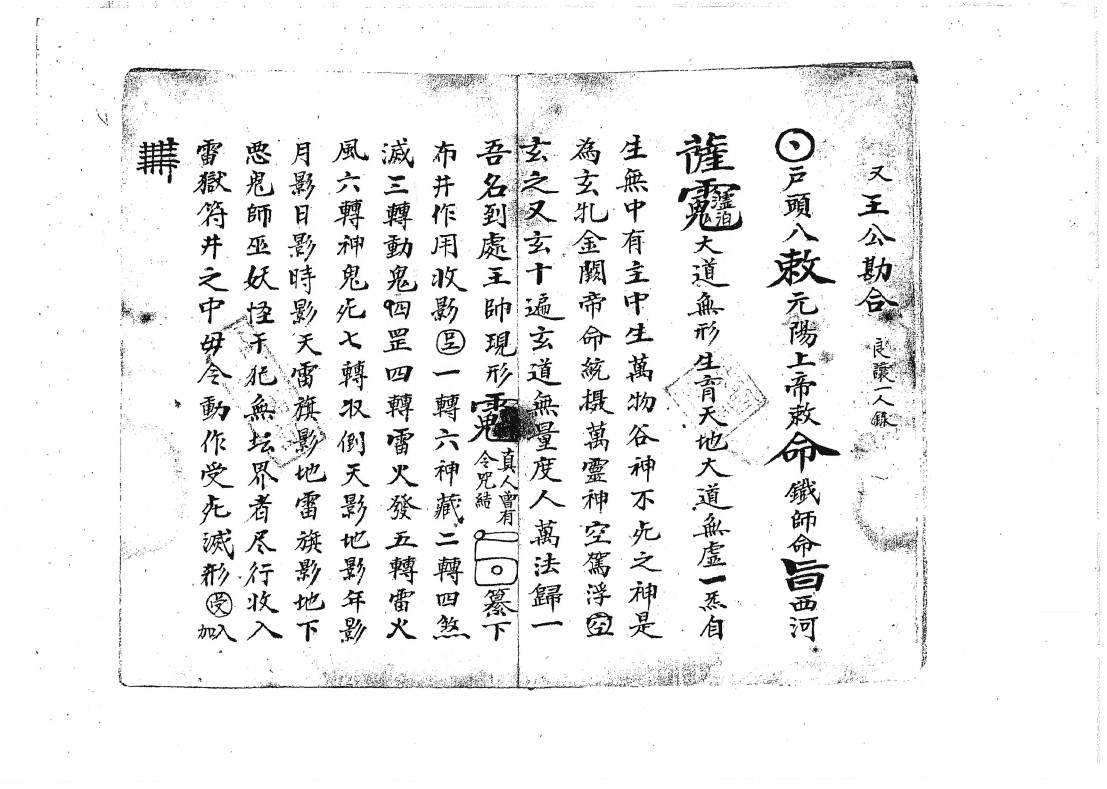 又王公勘合 良讓一人錄
戶頭八敕元陽上帝敕命鐵師命旨西河
薩 大道無形生育天地大道無虛一炁自
生無中有主中生萬物谷神不死之神是
為玄牝金闕帝命統摄萬霊神空駕浮
玄之又玄十遍玄道無量度人萬法歸一
吾名到處王帥現形 真人曾有令咒結 纂下
布井作用收影 一轉六神藏二轉四煞
滅三轉動鬼四罡四轉雷火發五轉雷火
風六轉神鬼死七轉収倒天影地影年影
月影日影時影天雷旗影地雷旗影地下
恶鬼師巫妖怪干犯無坛界者尽行收入
雷獄符井之中毋令動作受死滅形 受 加入